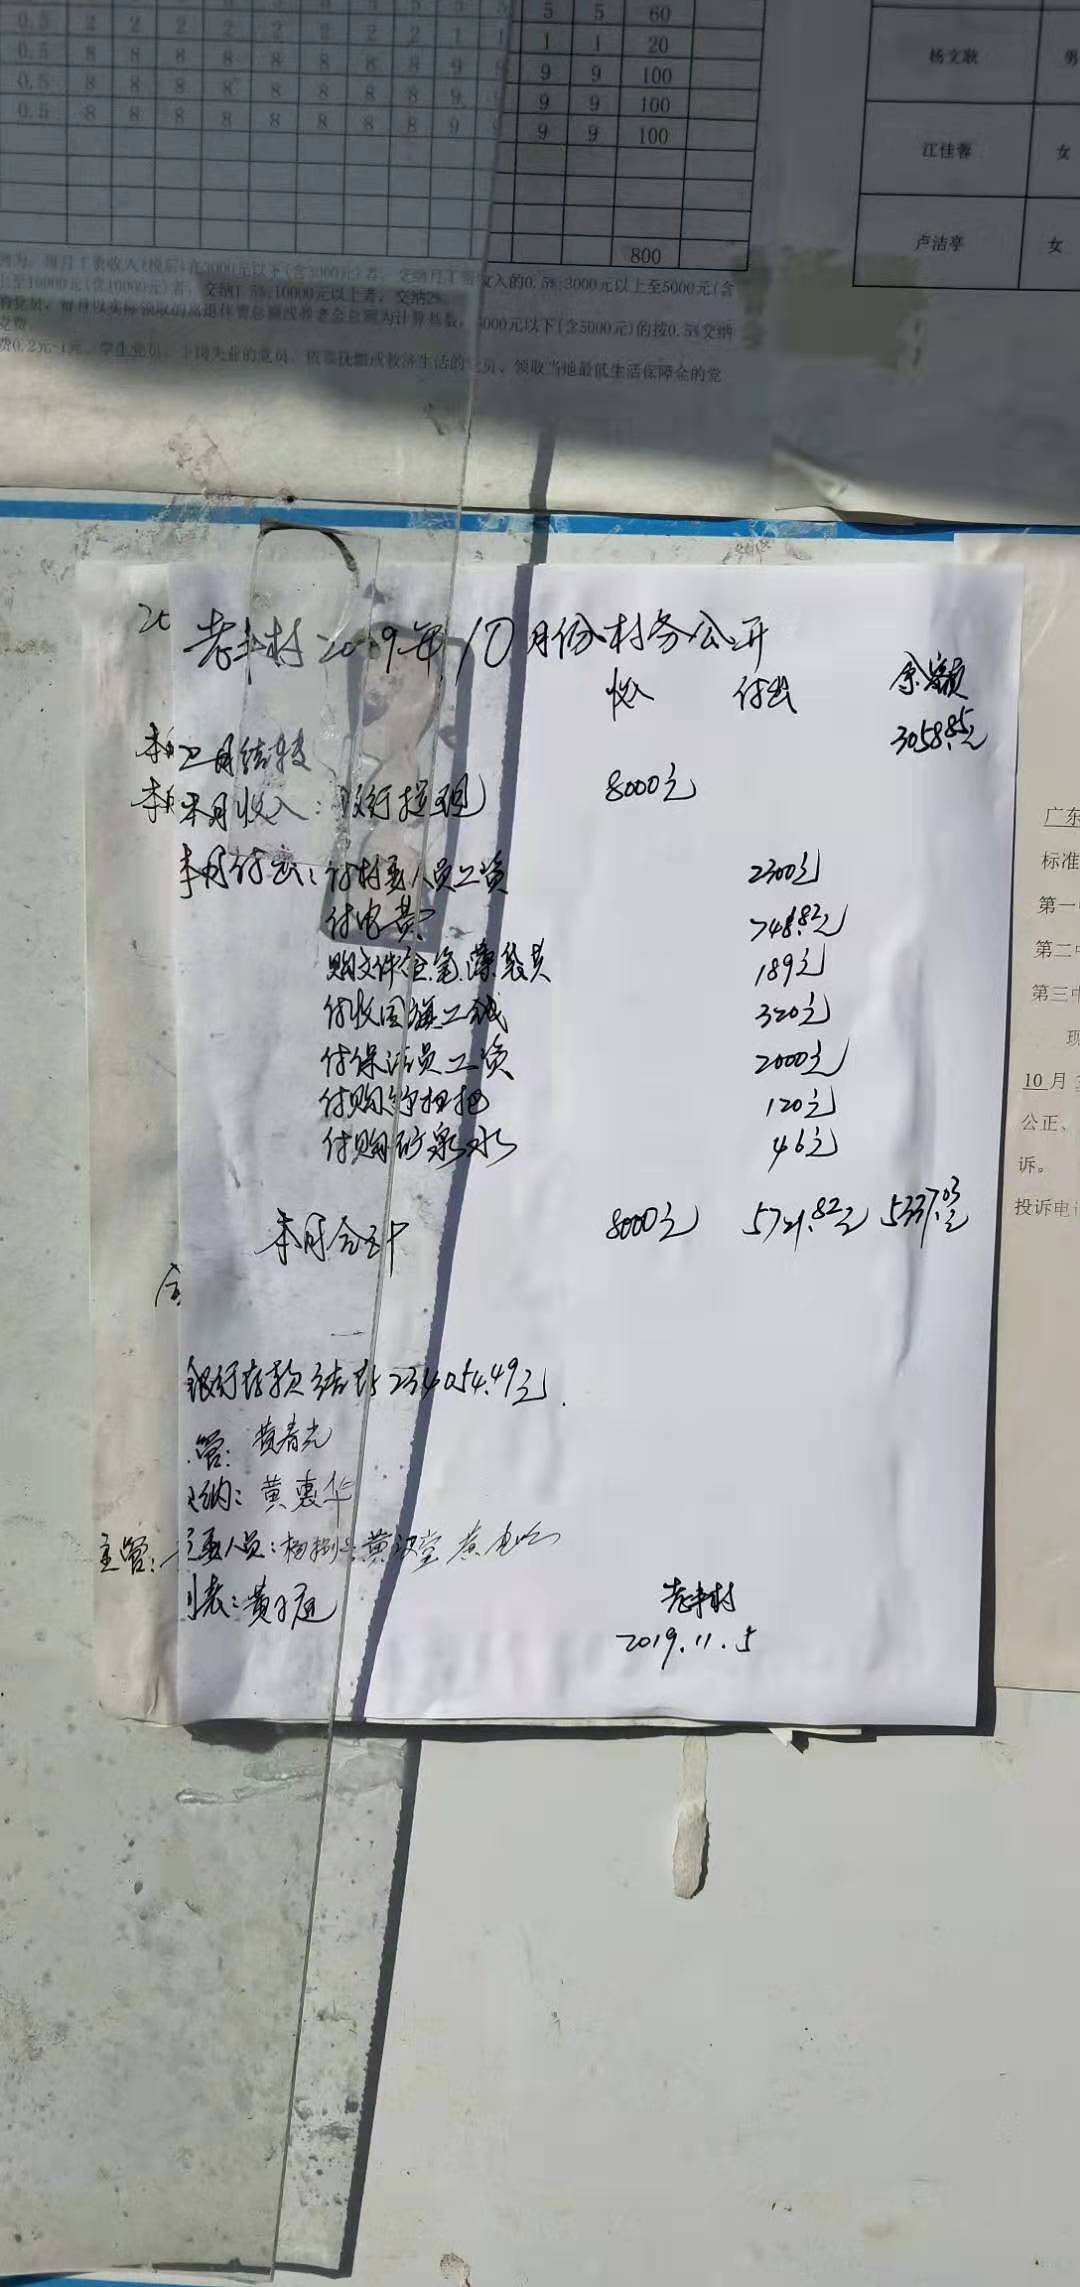 5 5 60
0.5 2 2 2 2 2 2 2 2 1 1 1 1 20
0.5 8 8 8 8 8 8 8 8 9 9 9 9 100
0.5 8 8 8 8 8 8 8 8 9 9 9 100
0.5 8 8 8 8 8 8 8 8 9 9 9 9 100
800
杨文耿 男
江佳蓉 女
卢洁亭 女
每月工资收入(税后)在3000元以下(含3000元)者,交纳月工资收入的0.5%;3000元以上至5000元(含
上至10000元(含10000元)者,交纳1.5%;10000元以上者,交纳2%。
的党员,每月以实际领取的离退休费总额或养老金总额为计算基数,5000元以下(含5000元)的按0.5%交纳
党费
费0.2元-1元。学生党员、下岗失业的党员、依靠抚恤或救济生活的党员、领取当地最低生活保障金的党
2019年10月份村务公开
收入 付出 余额
上月结转 3058.85元
本月收入: 银行提现 8000元
本月付出: 付村委人员工资 2300元
付电费 746.82元
购文件 笔 薄 袋 189元
付收国旗工钱 320元
付保洁员工资 2000元
付购 扫把 120元
付购矿泉水 46元
本月合计 8000元 5721.82元 5337.03元
银行存款结存234054.49元.
管: 黄春光
纳: 黄惠华
主管: 委人员: 黄汉堂
制表: 黄
村
2019.11.5
广东
标准
第一中
第二中
第三中
现
10月
公正、
诉。
投诉电话